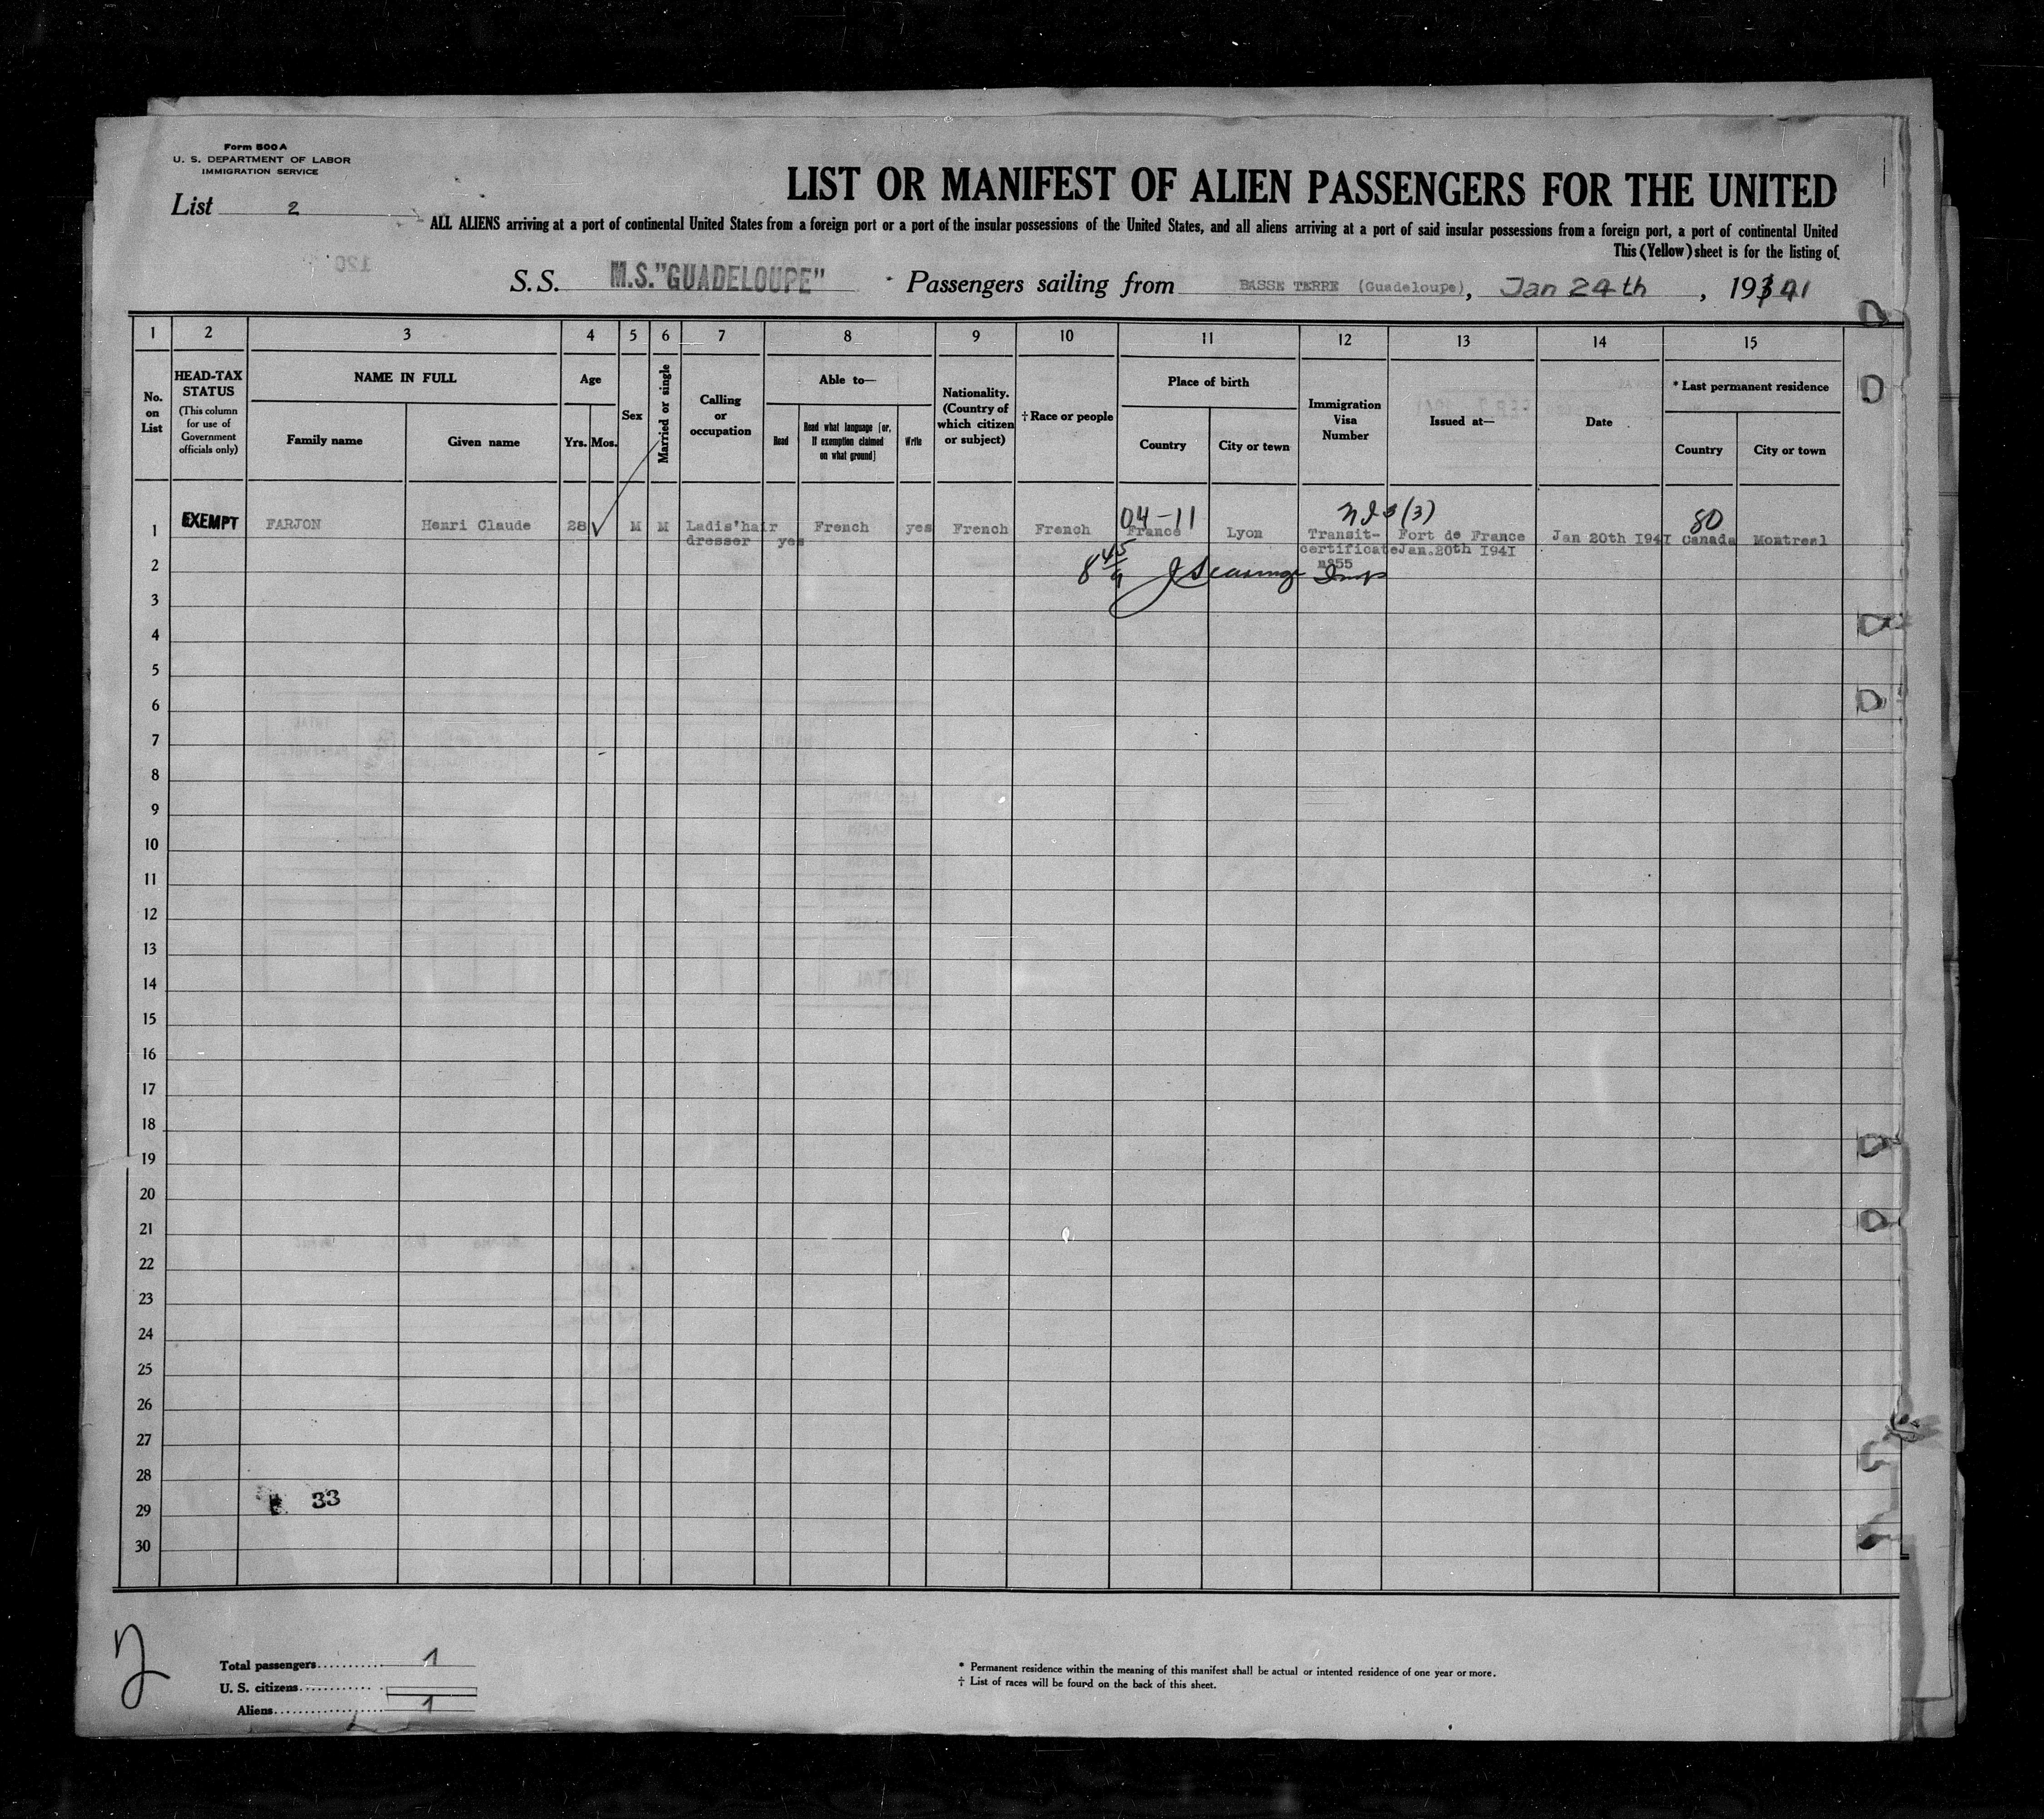 Form 500 A
U. S. DEPARTMENT OF LABOR
IMMIGRATION SERVICE
List 2
LIST OR MANIFEST OF ALIEN PASSENGERS FOR THE UNITED
ALL ALIENS arriving at a port of continental United States from a foreign port or a port of the insular possessions of the United States, and all aliens arriving at a port of said insular possessions from a foreign port, a port of continental United
This (Yellow) sheet is for the listing of
S. S. M.S."GUADELOUPE" Passengers sailing from BASSE TERRE (Guadeloupe), Jan 24th, 1941
1 2 3 4 5 6 7 8 9 10 11 12 13 14 15
No. on List
HEAD-TAX STATUS
(This column for use of Government officials only)
NAME IN FULL
Family name Given name
Age
Yrs. Mos.
Sex
Married or single
Calling or occupation
Able to—
Read
Read what language [or, if exemption claimed on what ground]
Write
Nationality. (Country of which citizen or subject)
† Race or people
Place of birth
Country City or town
Immigration Visa Number
Issued at—
Date
* Last permanent residence
Country City or town
04-11 (3) 80
1 EXEMPT FARJON Henri Claude 28 M M Ladis'hair French yes French French France Lyon Transit- Fort de France Jan 20th 1941 Canada Montreal
dresser yes certificate Jan.20th 1941
2
3
4
5
6
7
8
9
10
11
12
13
14
15
16
17
18
19
20
21
22
23
24
25
26
27
28
33
29
30
2
Total passengers 1
U. S. citizens
Aliens 1
* Permanent residence within the meaning of this manifest shall be actual or intented residence of one year or more.
† List of races will be found on the back of this sheet.